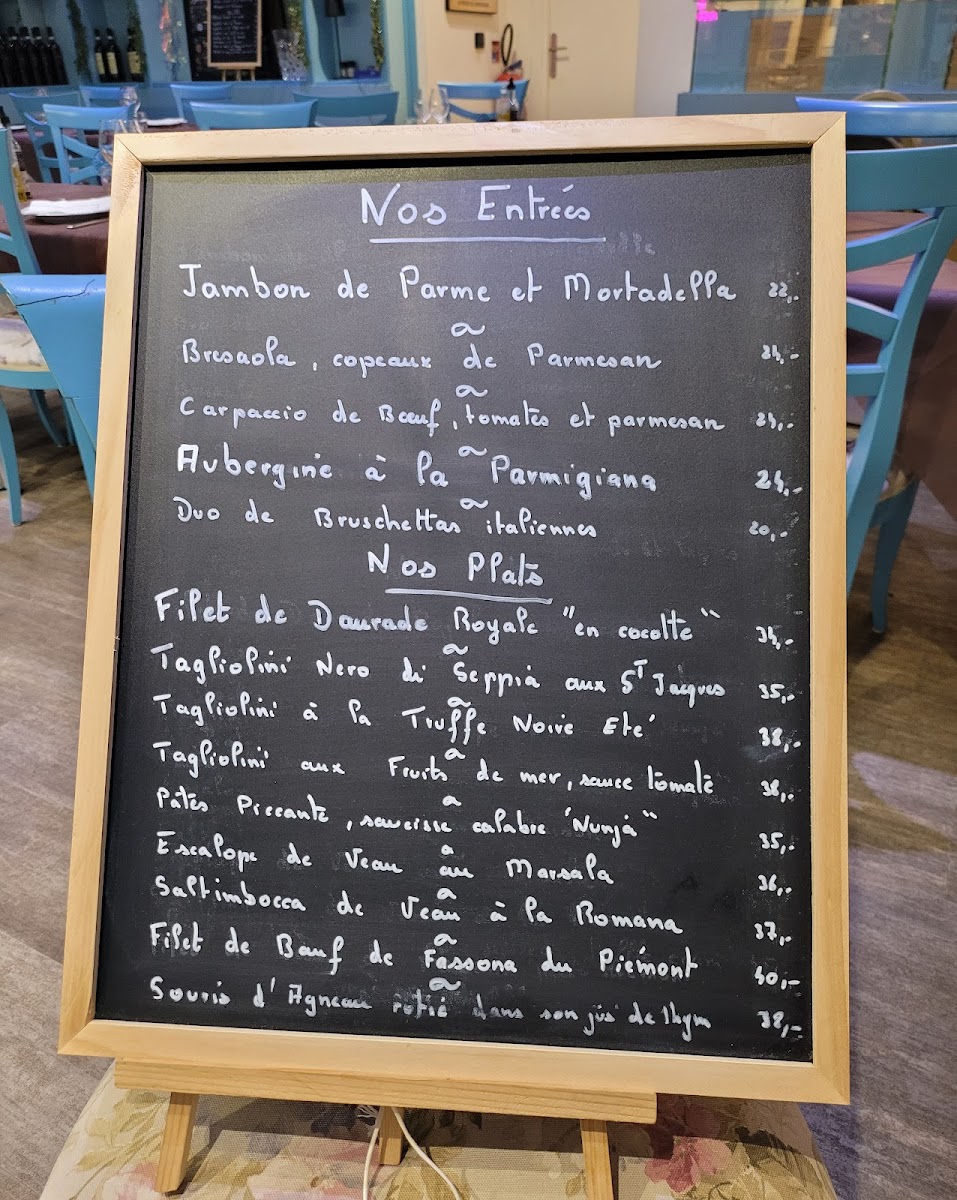 Nos Entrées
Jambon de Parme et Mortadella 22,-
Bresaola, copeaux de Parmesan 24,-
Carpaccio de Bœuf, tomates et parmesan 24,-
Aubergine à la Parmigiana 24,-
Duo de Bruschettas italiennes 20,-
Nos Plats
Filet de Daurade Royale "en cocotte" 34,-
Tagliolini Nero di Seppia aux St Jacques 35,-
Tagliolini à la Truffe Noire Eté 38,-
Tagliolini aux Fruits de mer, sauce tomate 38,-
Pâtes Piccante, saucisse calabre 'Nunjà" 35,-
Escalope de Veau au Marsala 36,-
Saltimbocca de Veau à la Romana 37,-
Filet de Bœuf de Fassona du Piémont 40,-
Souris d'Agneau rotié dans son jus de thym 38,-